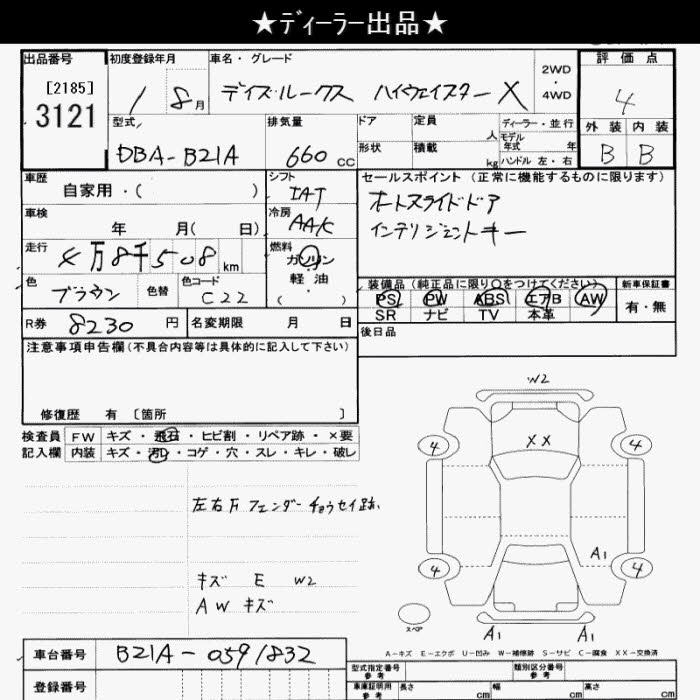 ★ディーラー出品★
出品番号 初度登録年月 車名・グレード 評価点
[2185]
3121
1 8月 デイズルークス ハイウェイスターX 2WD・4WD 4
型式 排気量 ドア 定員 人 ディーラー・並行 外装 内装
モデル年式 年
DBA-B21A 660cc 形状 積載 kg ハンドル 左・右 B B
車歴 シフト セールスポイント (正常に機能するものに限ります)
自家用・( ) IAT オートスライドドア
車検 冷房
年 月( 日) AAC インテリジェントキー
走行 燃料
4万8千508km ガソリン
軽油
( )
色 色替 色コード 装備品(純正品に限り○をつけてください) 新車保証書
ブラウン C22 PS PW ABS エアB AW 有・無
SR ナビ TV 本革
R券 8230円 名変期限 月 日 後日品
注意事項申告欄(不具合内容等は具体的に記入して下さい)
修復歴 有 〔箇所 〕
検査員 FW キズ・飛石・ヒビ割・リペア跡・×要
記入欄 内装 キズ・汚レ・コゲ・穴・スレ・キレ・破レ
左右Fフェンダーチョウセイ跡
キズ E W2
AW キズ
W2
XX
4 4
A1
4 4
スペア
A1 A1
A-キズ E-エクボ U-凹み W-補修跡 S-サビ C-腐食 XX-交換済
車台番号 B21A-0591832
登録番号
型式指定番号 参考 類別区分番号 参考
車庫証明用 参考 長さ cm 幅 cm 高さ cm